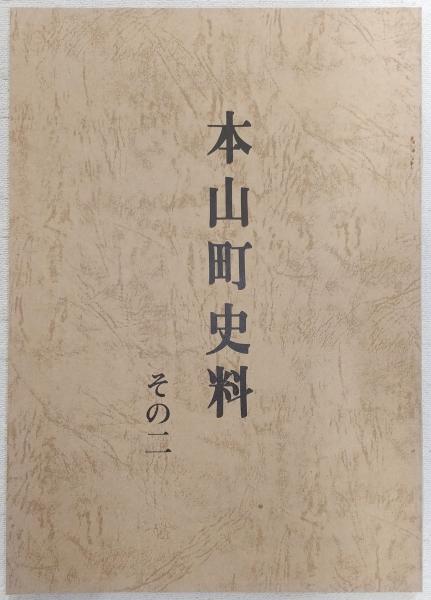 本山町史料
その二